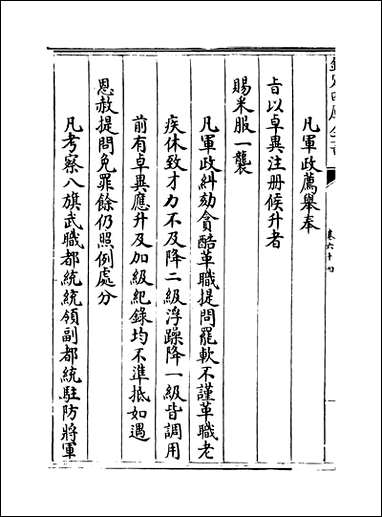 欽定四庫全書
卷六十七
凡軍政薦舉奉
旨以卓異注册候升者
賜采服一襲
凡軍政糾劾貪酷革職提問罷軟不謹革職老
疾休致才力不及降二級浮躁降一級皆調用
前有卓異應升及加級紀錄均不準抵如遇
恩赦提問免罪餘仍照例處分
凡考察八旗武職都統統領副都統駐防將軍